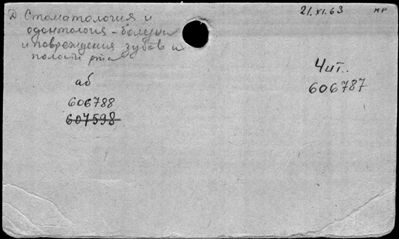 21.XI.63
Стоматология и
одонтология - болезни
и повреждения зубов и
полости рта
аб
606788
607598
Чит..
606787